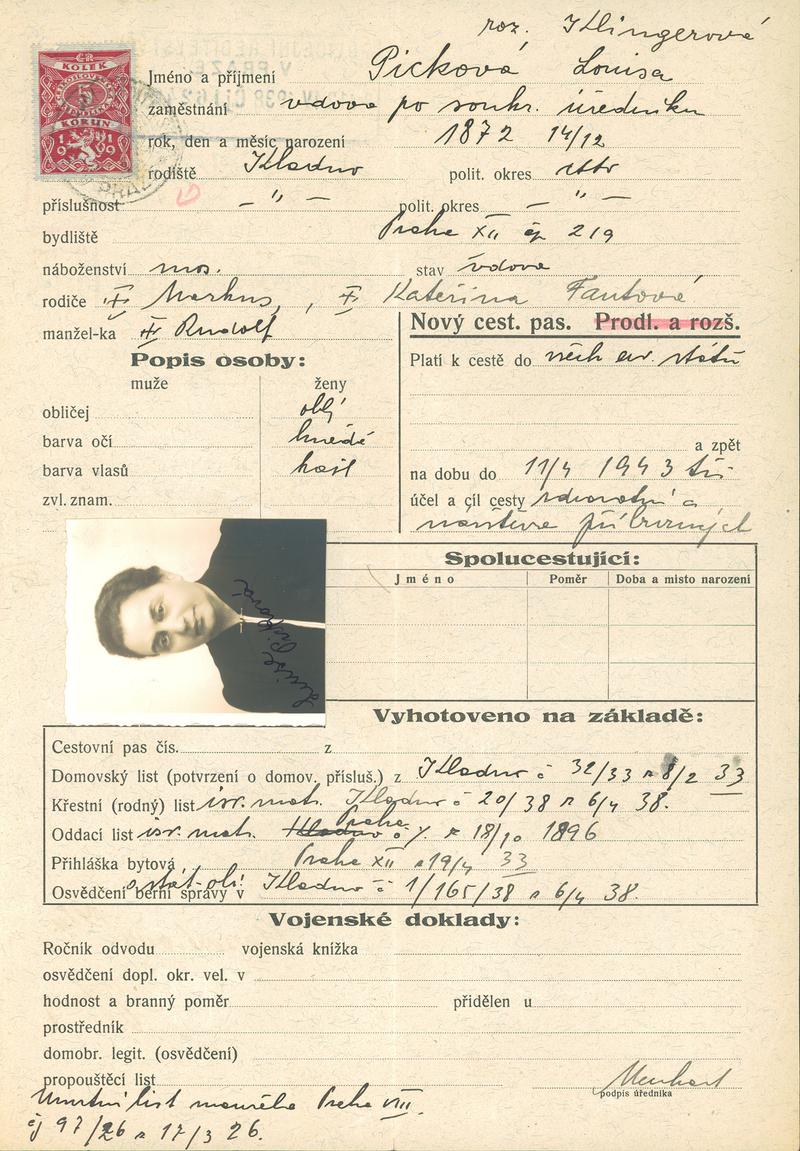 roz. Klingerová
ČR
KOLEK
5
KORUN
19 19
Jméno a příjmení Picková Louisa
zaměstnání vdova po soukr. úředníku
rok, den a měsíc narození 1872 14/12
rodiště Kladno polit. okres ttv
PRAZE
příslušnost — " — polit. okres — " —
bydliště Praha XII čp 219
náboženství mos. stav vdova
rodiče Markus, Kateřina Fantová
manžel-ka Rudolf
Nový cest. pas. Prodl. a rozš.
Popis osoby:
Platí k cestě do všech ev. států
muže ženy
obličej oblý
barva očí hnědé
a zpět
barva vlasů
na dobu do 11/4 1943 tři
zvl. znam.
účel a cíl cesty zdravotní a
návštěva příbuzných
Spolucestující:
Jméno Poměr Doba a misto narození
Luise Picková
Vyhotoveno na základě:
Cestovní pas čís. z
Domovský list (potvrzení o domov. přísluš.) z Kladno č 32/33 z 8/2 33
Křestní (rodný) list isr. mat. Kladno č 20/38 z 6/4 38.
Praha
Oddací list isr. mat. Kladno č %. z 18/10 1896
Přihláška bytová Praha XII z 19/4 33
o stát. obč.
Osvědčení berní správy v Kladno č 1/165/38 z 6/4 38.
Vojenské doklady:
Ročník odvodu vojenská knížka
osvědčení dopl. okr. vel. v
hodnost a branný poměr přidělen u
prostředník
domobr. legit. (osvědčení)
propouštěcí list
podpis úředníka
Úmrtní list manžela Praha VIII.
čj 97/26 z 17/3 26.